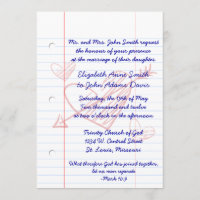 Mr. and Mrs. John Smith request
the honour of your presence
at the marriage of their daughter
Elizabeth Anne Smith
to John Adams Davis
Saturday, the 19th of May
two thousand and twelve
at two o'clock in the afternoon
Trinity Church of God
1234 W. Central Street
St. Louis, Missouri
What therefore God has joined together,
let no man separate.
-Mark 10:9